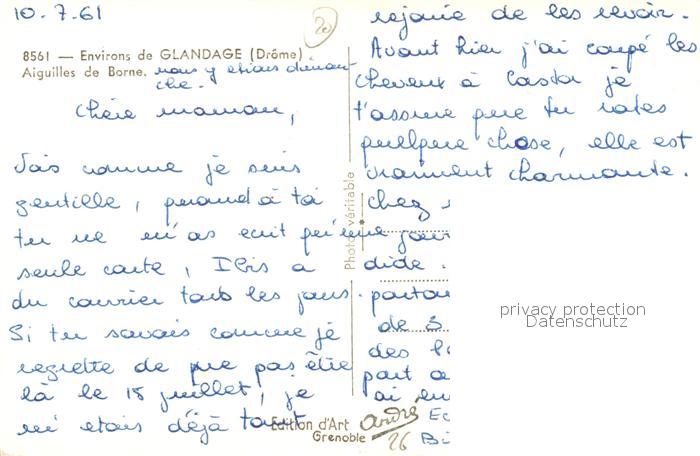 10.7.61
20
8561 — Environs de GLANDAGE (Drôme)
Aiguilles de Borne. nous y etions diman-
che.
Chère maman,
Vois comme je suis
gentille, quand à toi
tu ne m'as ecrit qu'une
seule carte, Ibis a
du courrier tous les jours.
Si tu savais comme je
regrette de ne pas être
là le 18 juillet, je
m'etais déjà tout
rejouie de les revoir.
Avant hier j'ai coupé les
cheveux à Castor je
t'assure que tu rates
quelque chose, elle est
vraiment charmante.
chez
jour
dide.
partou
de S
des
part
ai en
Ec
Bi
Photo véritable
Edition d'Art André
Grenoble
26
privacy protection
Datenschutz